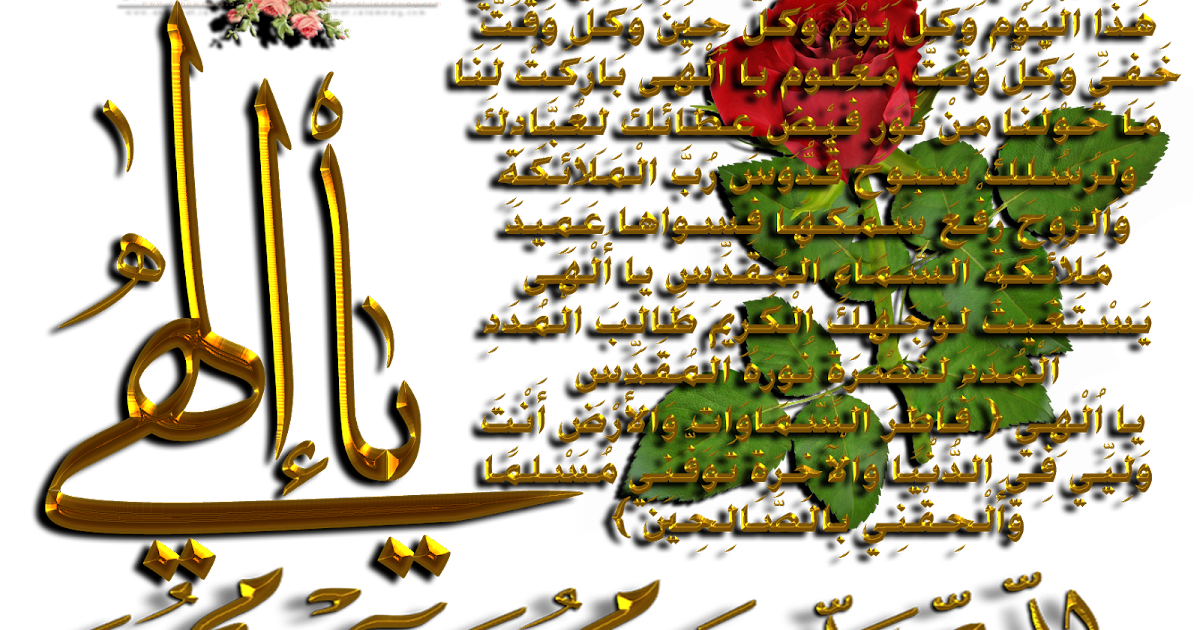 هَذَا الْيَوْمِ وَكُلِّ يَوْمٍ وَكُلِّ حِينٍ وَكُلِّ وَقْتٍ
خَفِيٍّ وَكُلِّ وَقْتٍ مَعْلُومٍ يا أَلْهَى بَارَكْتَ لَنَا
مَا حَوْلَنَا مِنْ نُورِ فَيْضِ عَطَائِكَ لِعُبَّادِكَ
وَلِرُسُلِكَ سُبُوحٌ قُدُّوسٌ رُبَّ الْمَلَائِكَةِ
وَالرُّوحَ رِفْعَ سَمكَها فَسَواها عَمِيدَ
مَلائِكةِ السَّماءِ المُقَدَّسِ يا أَلْهَى
يَسْتَغِيثُ لوجهكَ الْكَرِيمِ طَالِبَ المُدَدِ
الْمُدَدِ لنَصْرَةِ نُورِهَ المُقَدَّسِ
يا أَلْهَي ( فَاطِرَ السَّماوَاتِ وَالأَرْضِ أَنْتَ
وَلِيِّي فِي الدُّنْيَا وَالآخِرَةِ تَوَفَّنِي مُسْلِمًا
وَأَلْحِقْنِي بِالصَّالِحِينَ )
يا إلهي